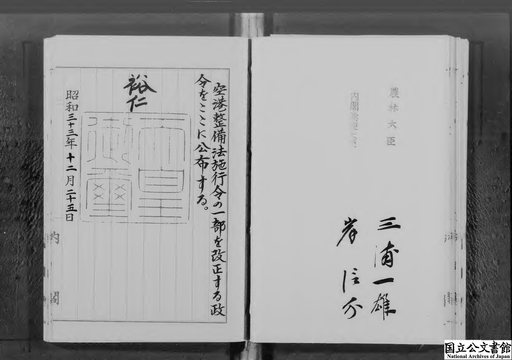 農林大臣
三浦一雄
岸信介
空港整備法施行令の一部を改正する政
令をここに公布する。
裕仁
天皇
御璽
昭和三十三年十二月二十五日
内閣
国立公文書館
National Archives of Japan